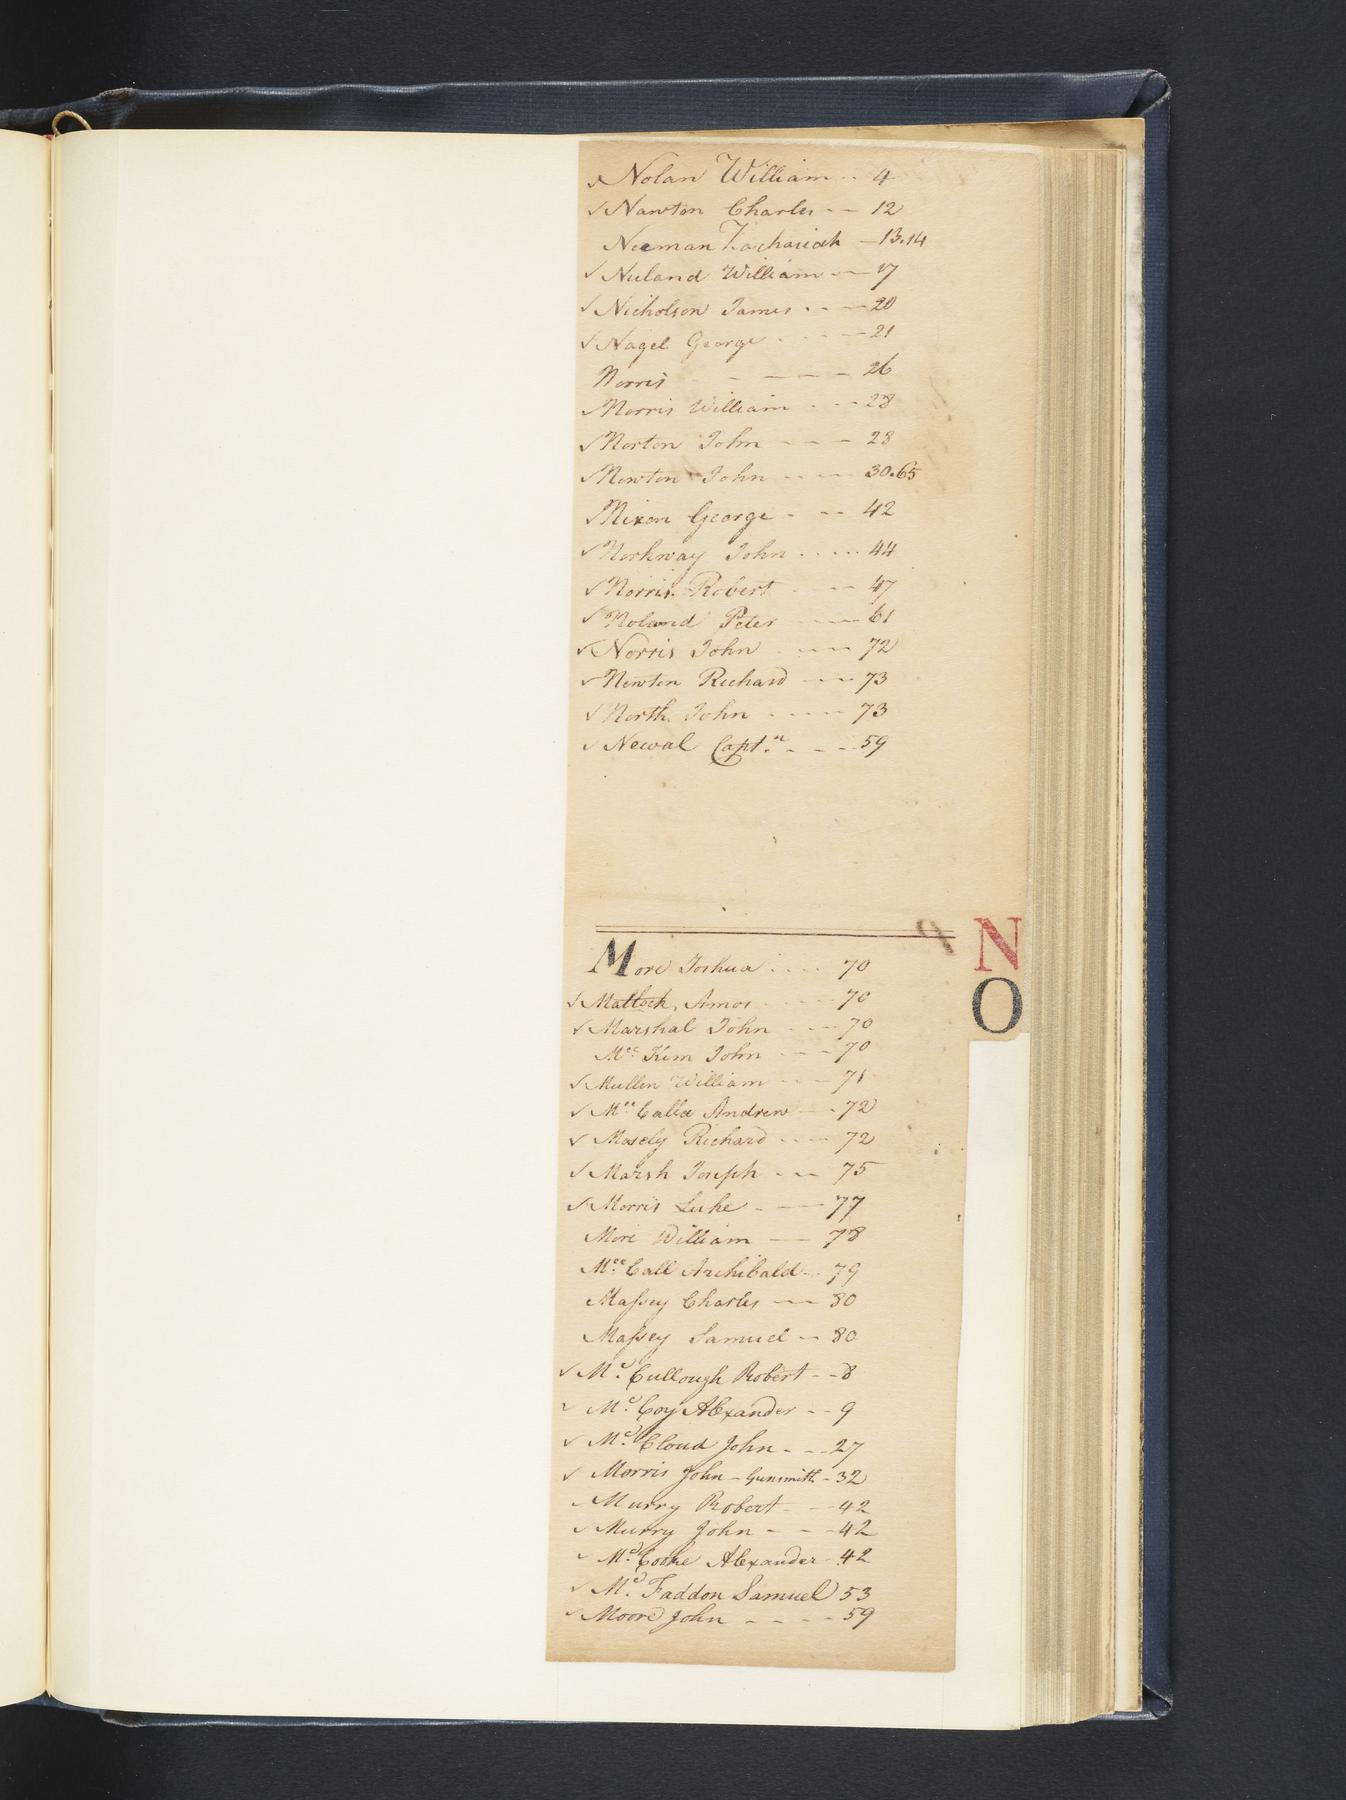 ✓ Nolan William - - 4
✓ Nawton Charles - - 12
Neeman Zachariah - 13.14
✓ Nuland William - - 17
✓ Nicholson James - - - 20
✓ Nagel George - - - - 21
Norris - - - - 26
Norris William - - - 28
✓ Norton John - - - 28
✓ Newton John - - - 30.65
✓ Nixon George - - - 42
✓ Norkway John - - - - - 44
✓ Norris Robert - - - 47
✓ Noland Peter - - - 61
✓ Norris John - - - - 72
✓ Newton Richard - - - 73
✓ North John - - - - - 73
✓ Newal Capt.n - - - 59
N
More Joshua - - - - 70
O
✓ Matlock, Amos - - - - 70
✓ Marshal John - - - 70
Mcc Kim John - - - 70
✓ Mullen William - - - 71
✓ Mcc Calla Andrew - - 72
✓ Mosely Richard - - - 72
✓ Marsh Joseph - - - 75
✓ Morris Luke - - - - 77
More William - - 78
Mcc Call Archibald - - 79
Massey Charles - - - 80
Massey Samuel - - 80
✓ Mc. Cullough Robert - - 8
✓ Mc. Coy Alexander - - 9
✓ Mc. Cloud John - - - 27
✓ Morris John - Gunsmith - 32
✓ Murry Robert - - - 42
✓ Murry John - - - 42
✓ Mc. Cooke Alexander - 42
✓ Mc. Faddon Samuel 53
✓ Moore John - - - - 59